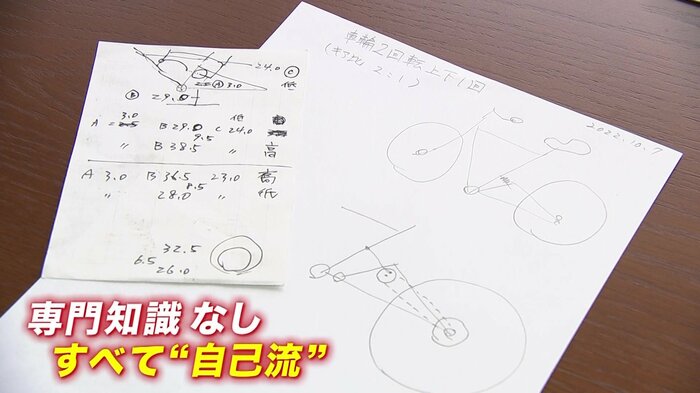 車輪2回転上下1回
(ギア比 2:1)
2022.10.7
24.0 C
低
A 3.0
B 29.0
3.0 低
A = B 29.0 C 24.0
9.5
〃 B 38.5 〃 高
A 3.0 B 36.5 23.0 高
8.5
〃 28.0 〃 低
32.5
6.5
26.0
専門知識 なし
すべて“自己流”